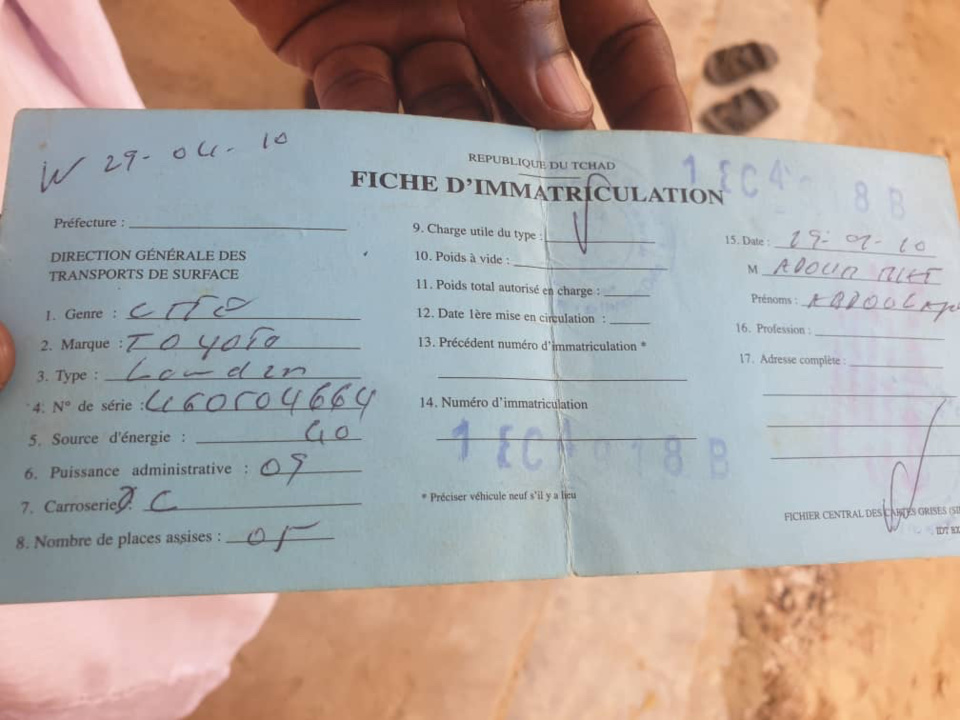 W 29-04-10
REPUBLIQUE DU TCHAD
FICHE D'IMMATRICULATION
Préfecture :
DIRECTION GÉNÉRALE DES
TRANSPORTS DE SURFACE
1. Genre :
2. Marque : TOYOTA
3. Type :
4. N° de série : 460504664
5. Source d'énergie : GO
6. Puissance administrative : 09
7. Carroserie : C
8. Nombre de places assises : 05
9. Charge utile du type :
10. Poids à vide :
11. Poids total autorisé en charge :
12. Date 1ère mise en circulation :
13. Précédent numéro d'immatriculation *
14. Numéro d'immatriculation
18 B
* Préciser véhicule neuf s'il y a lieu
8 B
15. Date :
M ADOUM
Prénoms :
16. Profession :
17. Adresse complète :
FICHIER CENTRAL DES CARTES GRISES